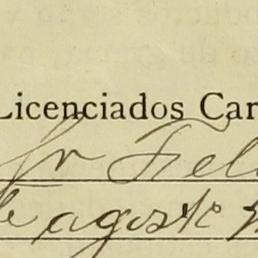 Licenciados Car
Sr Feli
de agosto